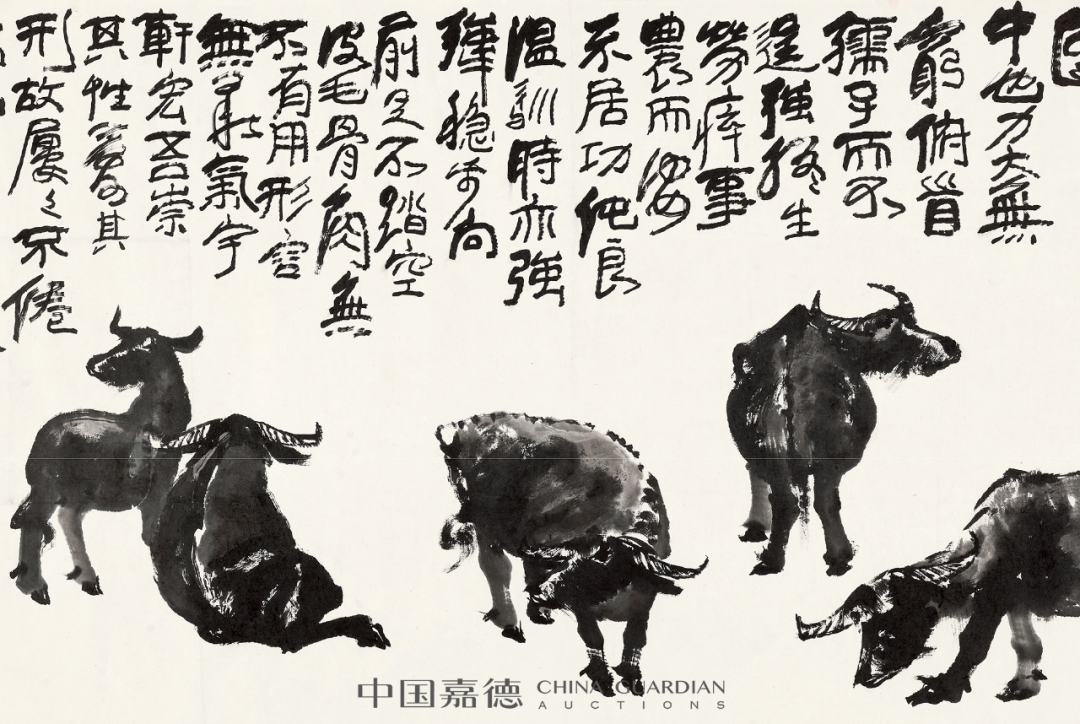 牛也力大無
窮俯首
孺子而不
逞強終生
勞瘁事
農而安
不居功純良
溫馴時亦強
犟穩步向
前足不踏空
皮毛骨肉無
不有用形容
無華氣宇
軒宏吾崇
其性愛其
形故屢々不倦
中国嘉德 CHINA GUARDIAN
AUCTIONS